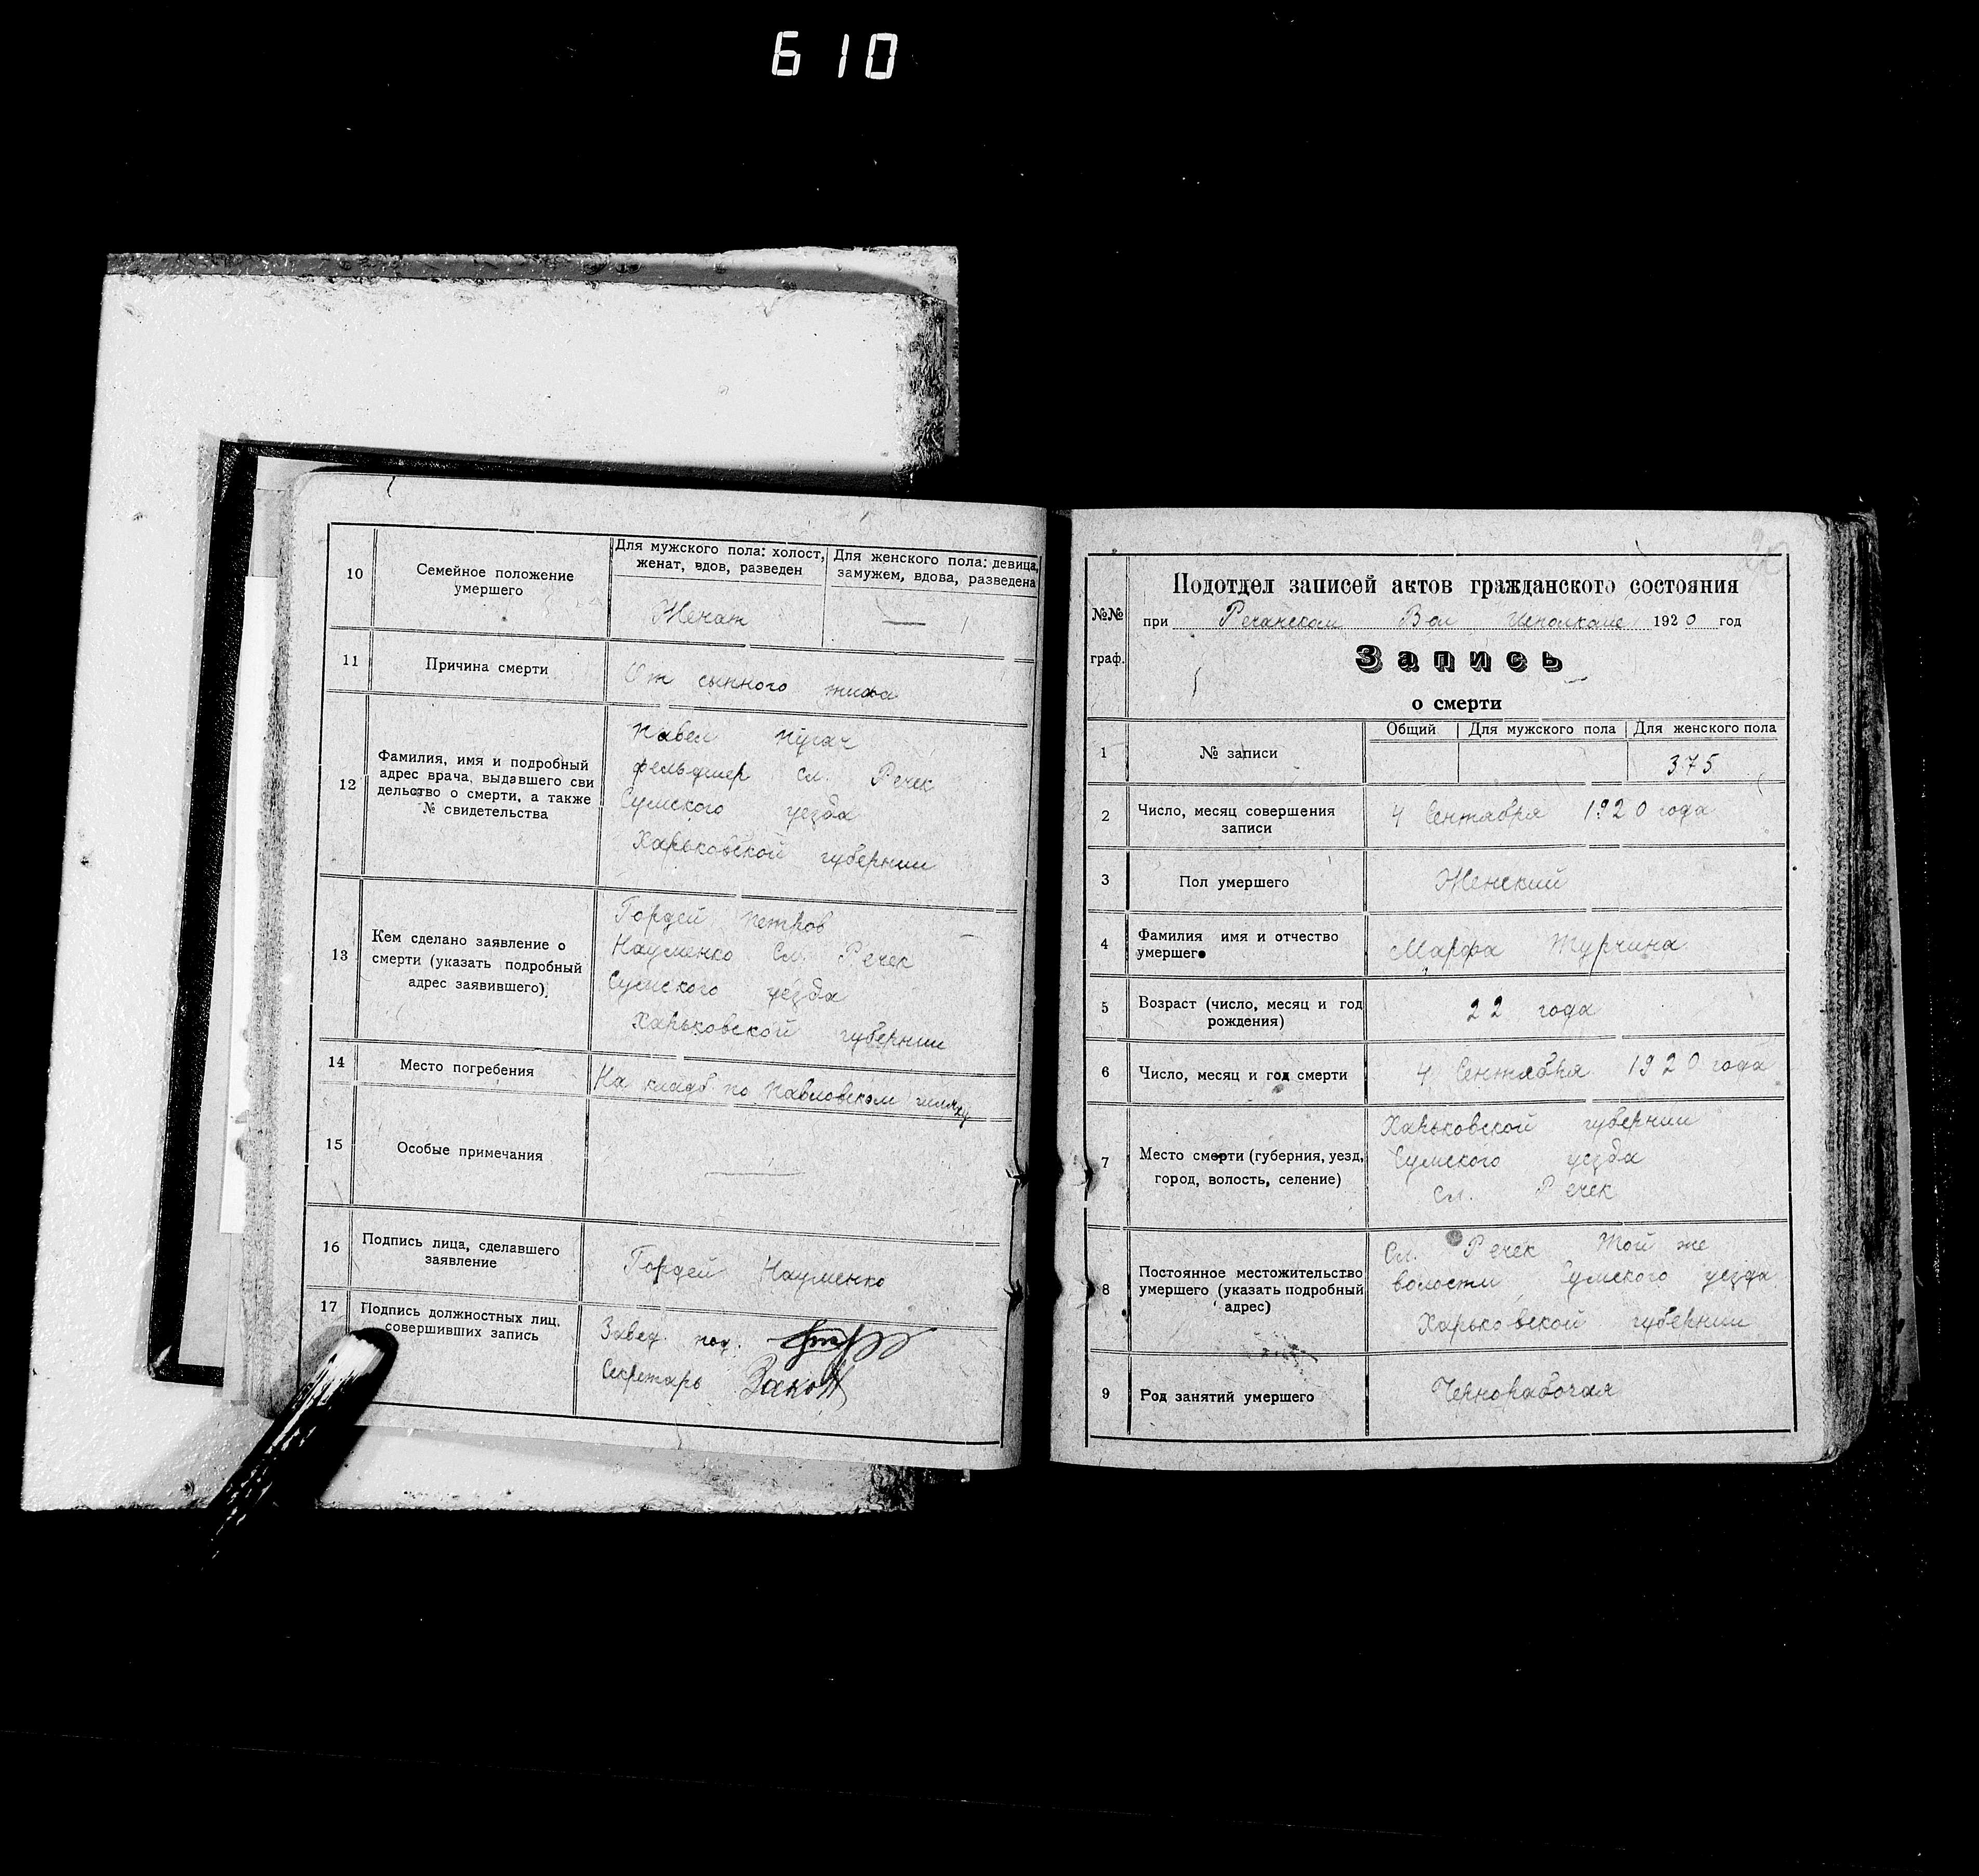 610
10
Семейное положение
умершего
Для мужского пола: холост,
женат, вдов, разведен
Для женского пола: девица,
замужем, вдова, разведена
Женат
—
11
Причина смерти
От сыпного тифа
12
Фамилия, имя и подробный
адрес врача, выдавшего сви
дельство о смерти, а также
№ свидетельства
Павел Пугач
фельдшер сл. Речек
Сумского уезда
Харьковской губернии
13
Кем сделано заявление о
смерти (указать подробный
адрес заявившего)
Гордей Петров
Науменко Сл. Речек
Сумского уезда
Харьковской губернии
14
Место погребения
На кладб. по Павловском шляху
15
Особые примечания
—
16
Подпись лица, сделавшего
заявление
Гордей Науменко
17
Подпись должностных лиц,
совершивших запись
Завед. под.
Секретарь
№№
граф.
Подотдел записей актов гражданского состояния
при Речанском Вол Исполкоме 1920 год
Запись
о смерти
1
№ записи
Общий
Для мужского пола
Для женского пола
375
2
Число, месяц совершения
записи
4 Сентября 1920 года
3
Пол умершего
Женский
4
Фамилия имя и отчество
умершего
Марфа Турчина
5
Возраст (число, месяц и год
рождения)
22 года
6
Число, месяц и год смерти
4 Сентября 1920 года
7
Место смерти (губерния, уезд,
город, волость, селение)
Харьковской губернии
Сумского уезда
сл. Речек
8
Постоянное местожительство
умершего (указать подробный
адрес)
Сл. Речек Той же
волости Сумского уезда
Харьковской губернии
9
Род занятий умершего
Чернорабочая